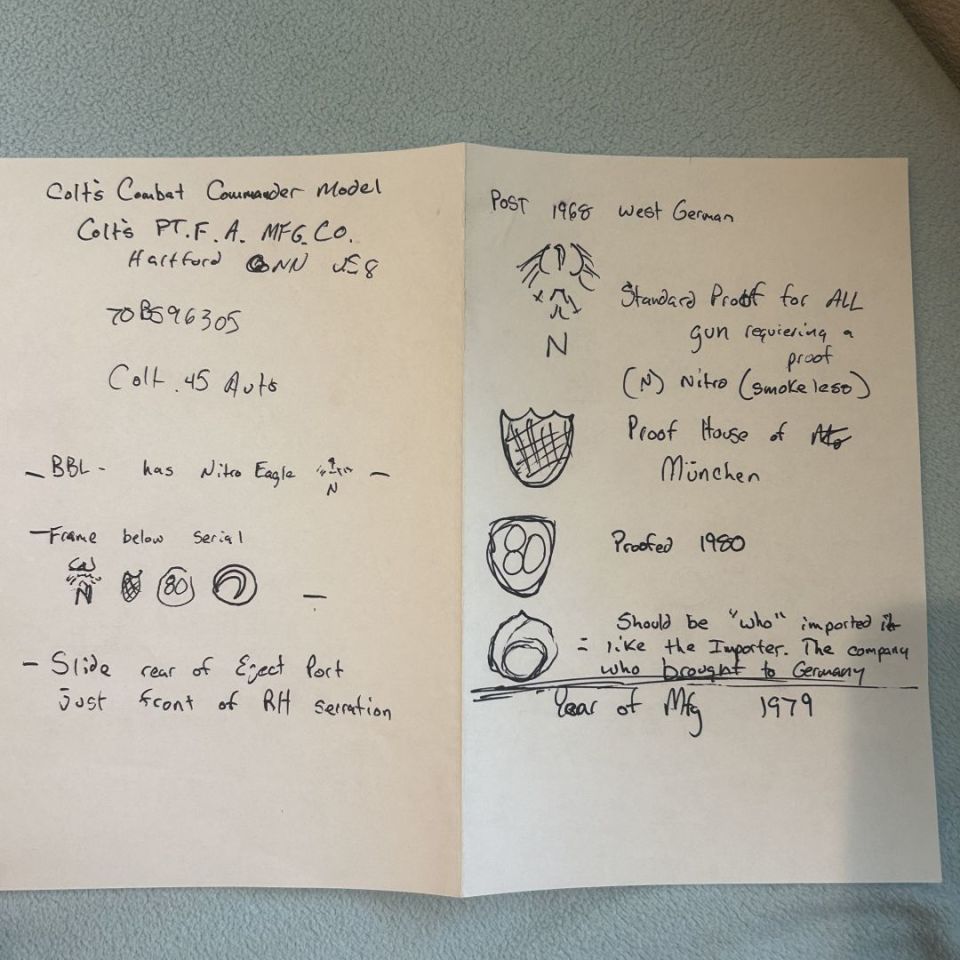 Colt's Combat Commander Model
Colt's PT. F. A. MFG. CO.
Hartford CONN US8
70BS96305
Colt .45 Auto
- BBL - has Nitro Eagle N -
- Frame below serial
N 80 -
- Slide rear of Eject Port
Just front of RH serration
POST 1968 West German
N
Standard Proof for ALL
gun requiering a
proof
(N) Nitro (smokeless)
Proof House of
München
80
Proofed 1980
Should be "who" imported it
= like the Importer. The company
who brought to Germany
Year of Mfg 1979